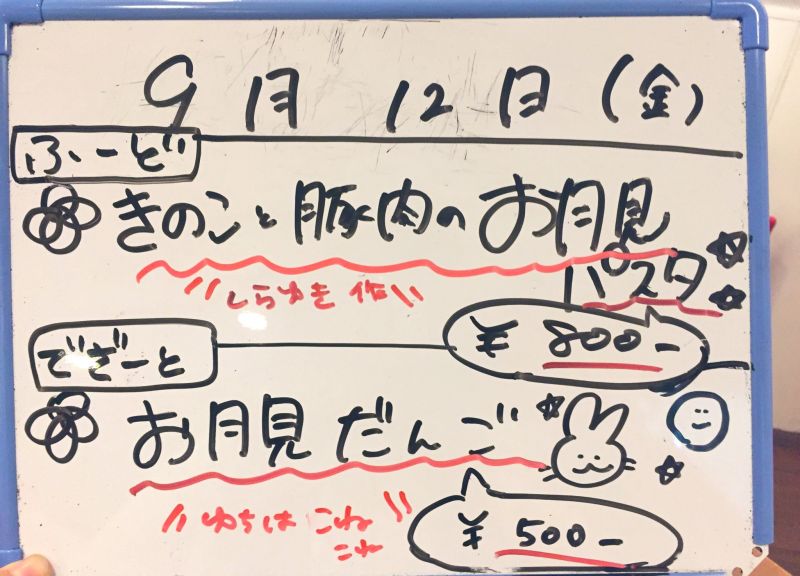 9月 12日 (金)
ふーど
きのこと豚肉のお月見
パスタ
〃しらゆき作〃
¥ 800-
でざーと
お月見だんご
〃ゆちはこね
こね〃
¥ 500-